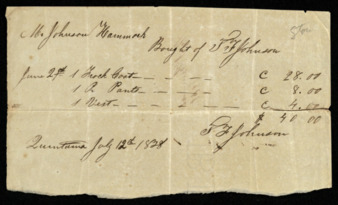 Mr Johnson Hammock
Bought of S F Johnson
June 29th 1 Frock Coat — — — C 28.00
1 Pr Pants — — — C 8.00
1 Vest — — — C 4.00
$ 40.00
S F Johnson
Quintana July 12th 1838